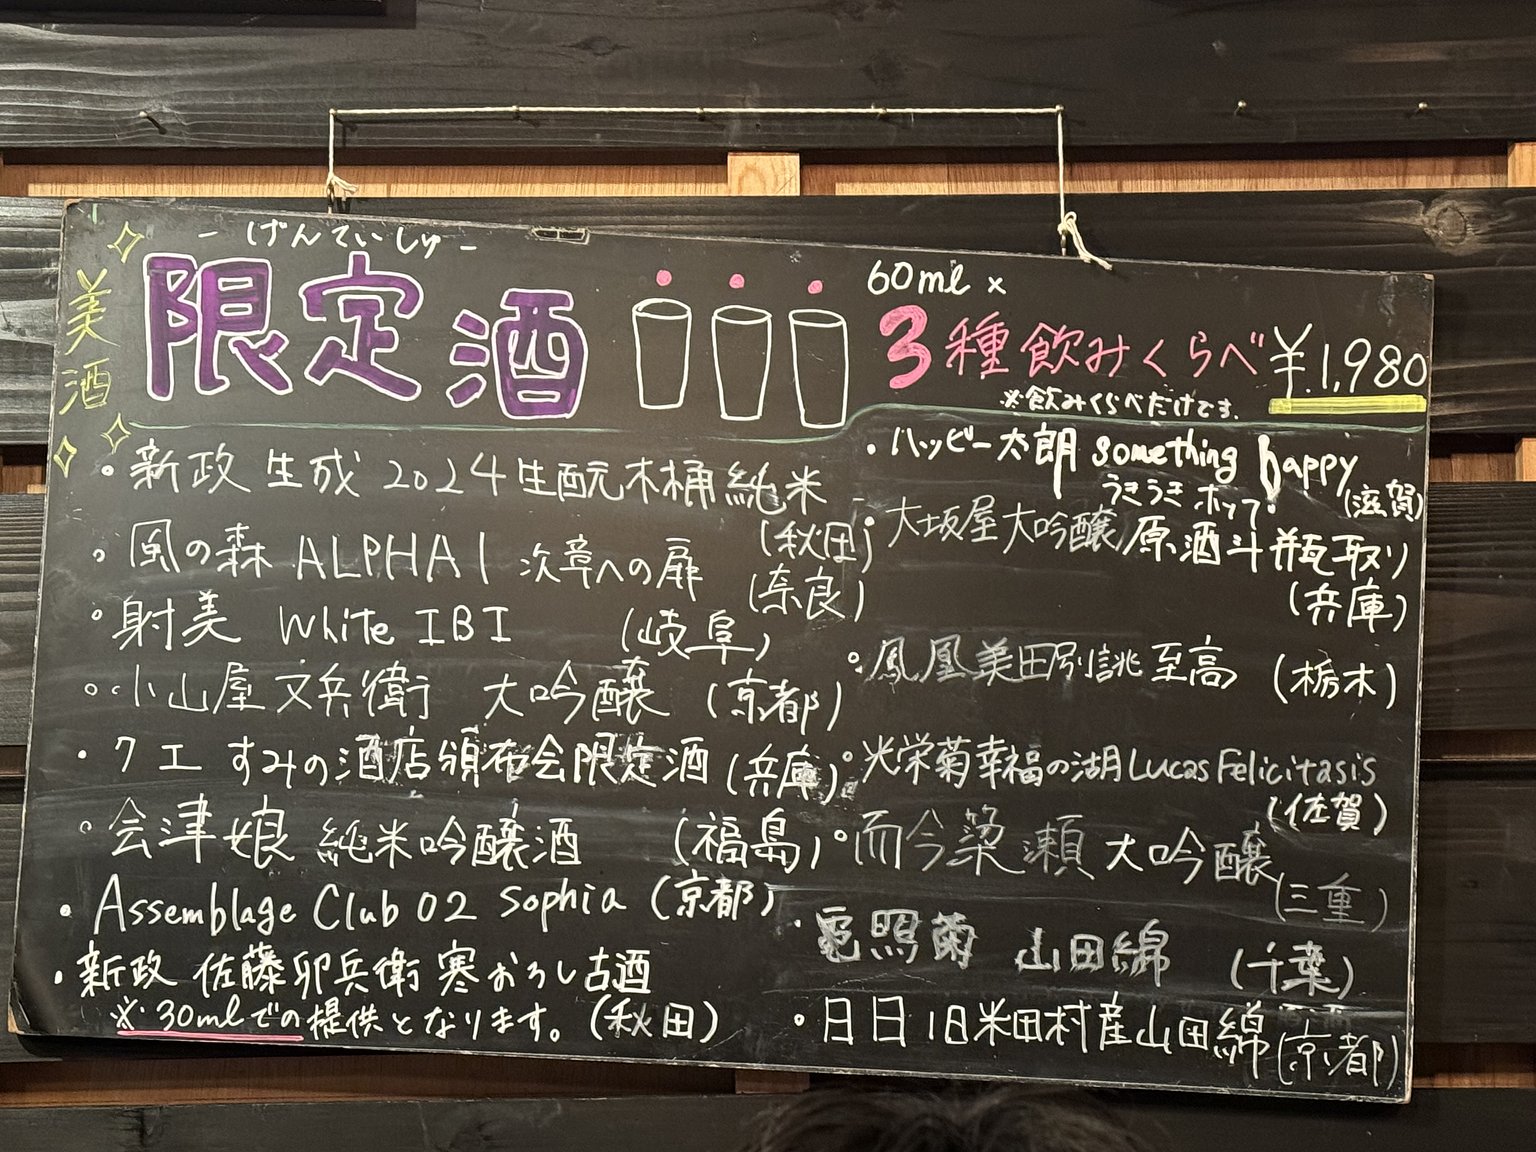 美酒
- げんていしゅ -
限定酒
60ml ×
3種飲みくらべ ¥1,980
※飲みくらべだけです。
・新政 生成 2024 生酛木桶純米
(秋田)
・風の森 ALPHA1 次章への扉
(奈良)
・射美 White IBI (岐阜)
・小山屋又兵衛 大吟醸 (京都)
・クエ すみの酒店頒布会限定酒 (兵庫)
・会津娘 純米吟醸酒 (福島)
・Assemblage Club 02 Sophia (京都)
・新政 佐藤卯兵衛 寒おろし古酒
※30mlでの提供となります。(秋田)
・ハッピー太郎 something happy
うきうきホップ (滋賀)
・大坂屋 大吟醸 原酒斗瓶取り
(兵庫)
・鳳凰美田別誂至高 (栃木)
・光栄菊幸福の湖 Lucas Felicitasis
(佐賀)
・而今 簗瀬 大吟醸
(三重)
・電照菊 山田錦 (千葉)
・日日 旧米田村産山田錦 (京都)